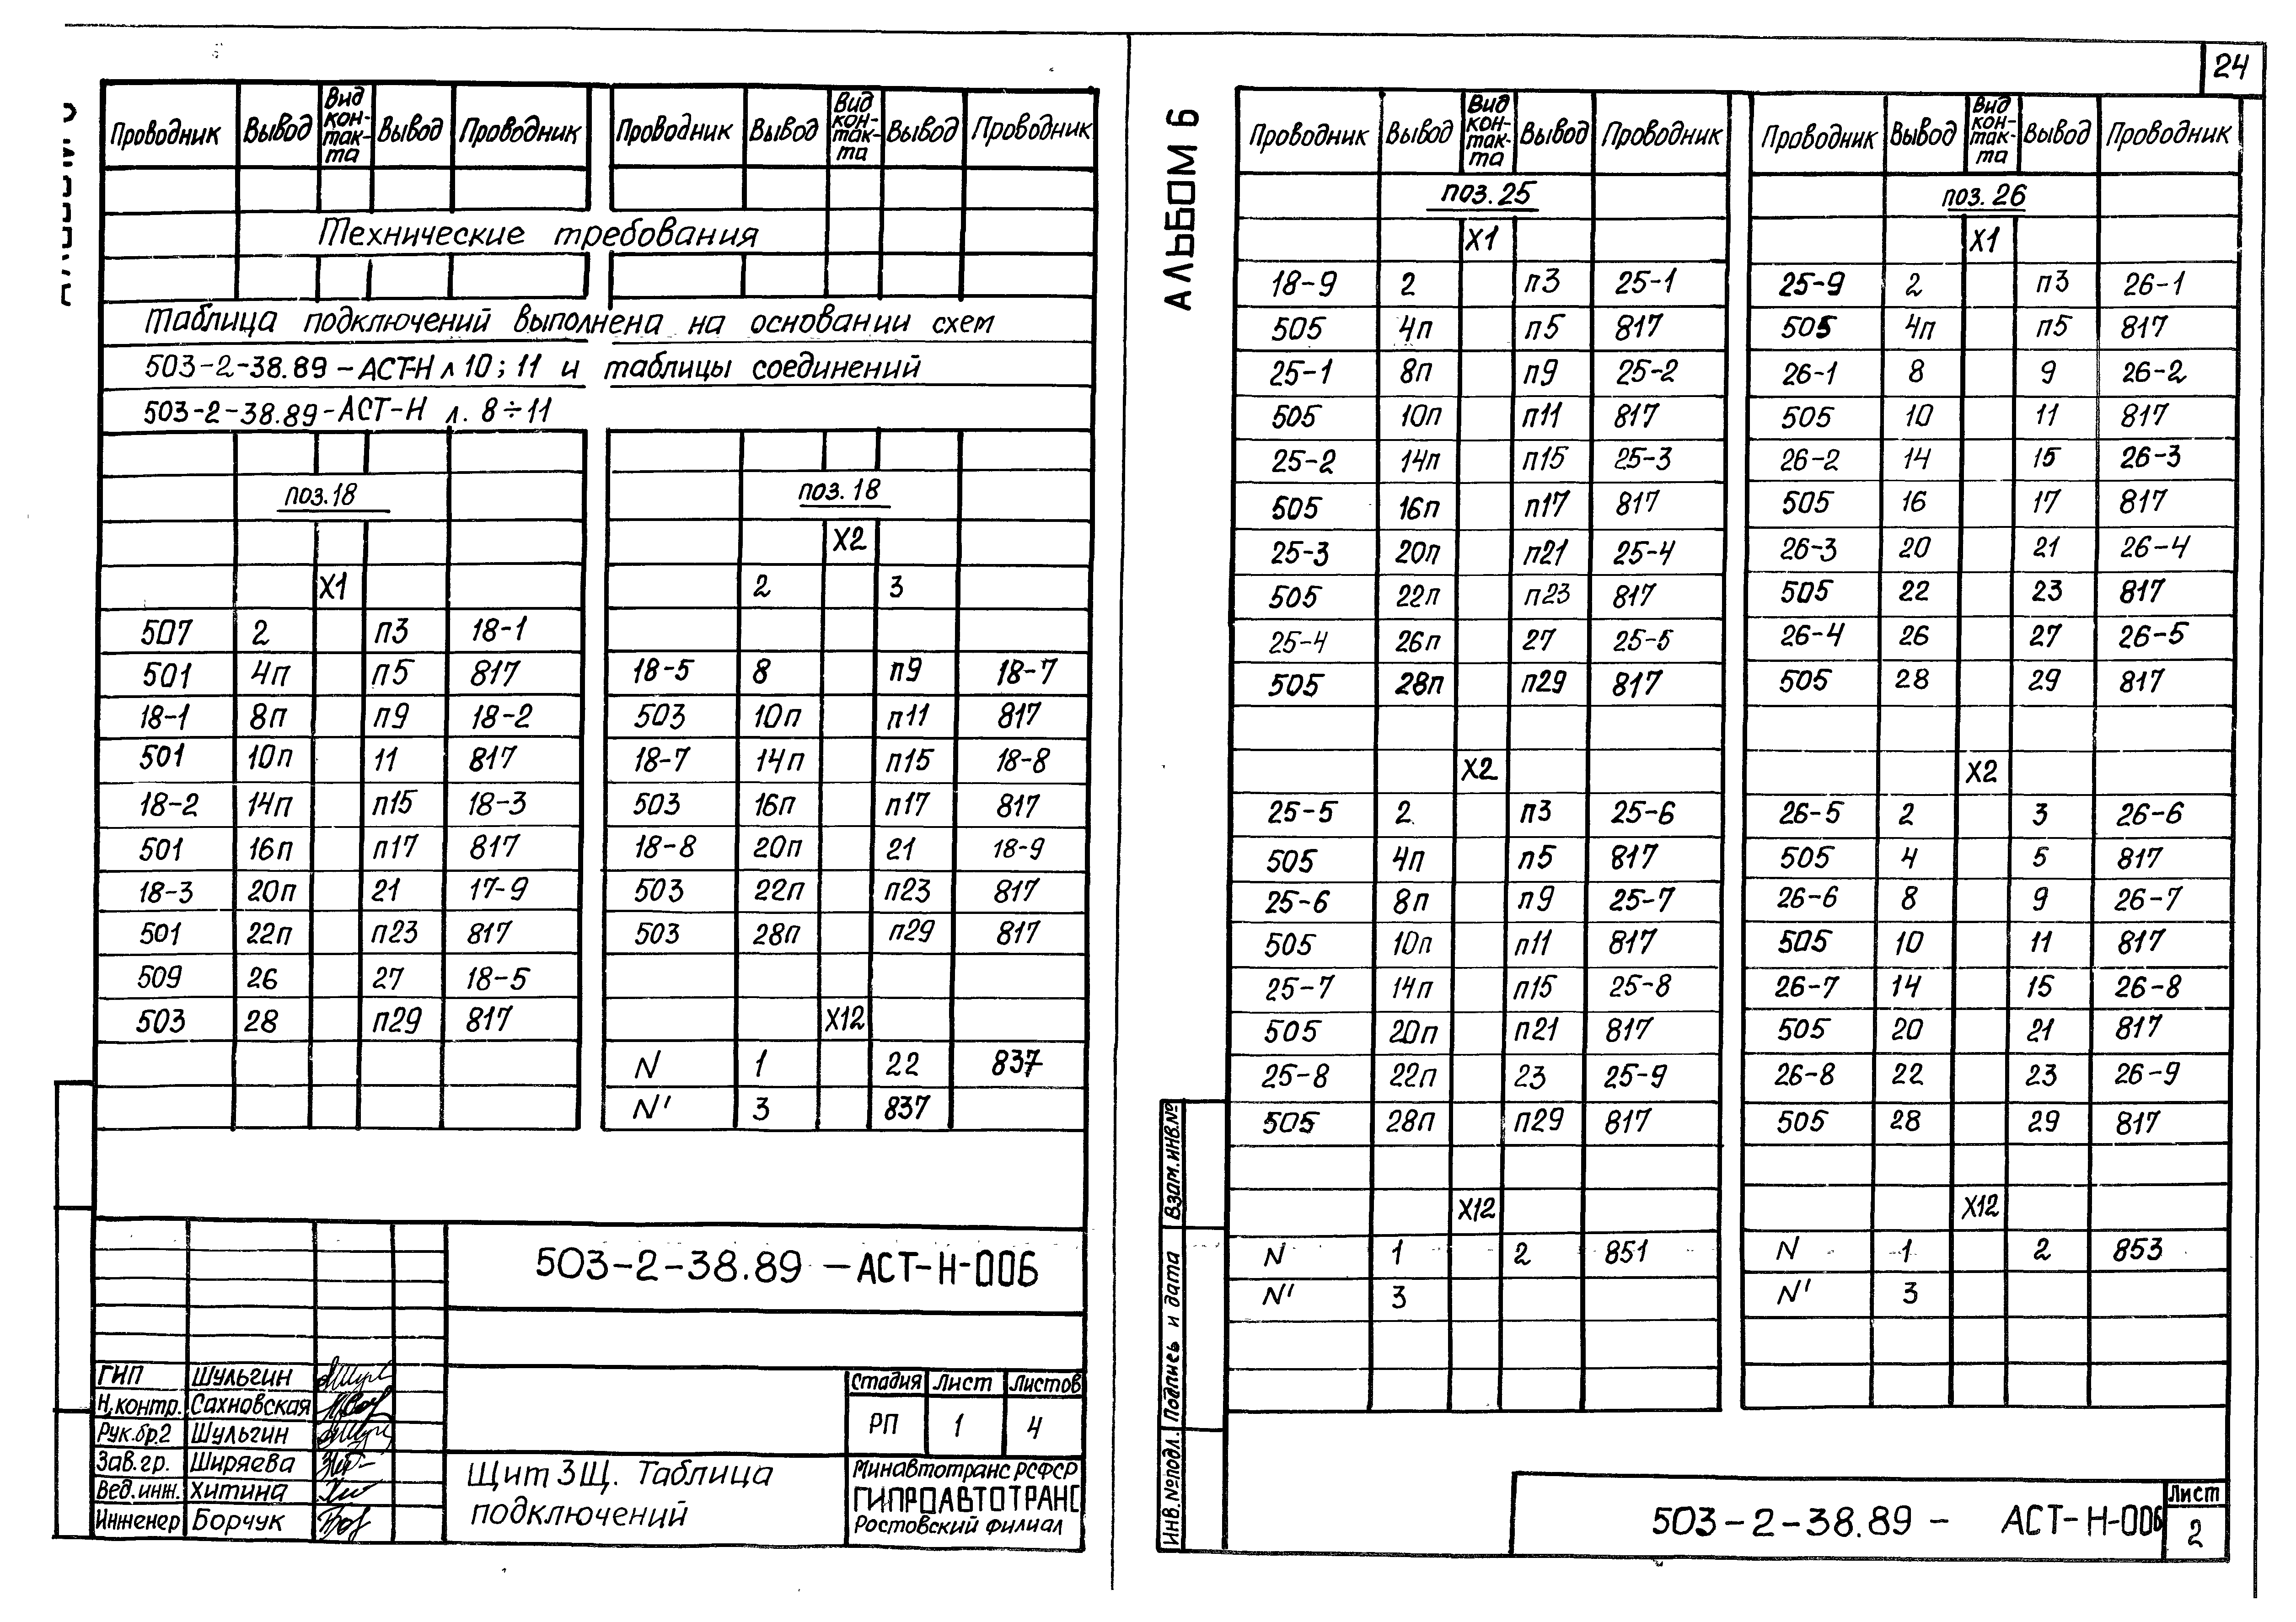 24
АЛЬБОМ 6
Проводник Вывод Вид кон-так-та Вывод Проводник Проводник Вывод Вид кон-так-та Вывод Проводник
Технические требования
Таблица подключений выполнена на основании схем
503-2-38.89-АСТ-Н л 10; 11 и таблицы соединений
503-2-38.89-АСТ-Н л. 8÷11
поз.18 поз.18
Х2
Х1 2 3
507 2 п3 18-1
501 4п п5 817 18-5 8 п9 18-7
18-1 8п п9 18-2 503 10п п11 817
501 10п 11 817 18-7 14п п15 18-8
18-2 14п п15 18-3 503 16п п17 817
501 16п п17 817 18-8 20п 21 18-9
18-3 20п 21 17-9 503 22п п23 817
501 22п п23 817 503 28п п29 817
509 26 27 18-5
503 28 п29 817 Х12
N 1 22 837
N' 3 837
503-2-38.89 -АСТ-Н-006
ГИП Шульгин
Н.контр. Сахновская
Рук.бр.2 Шульгин
Зав.гр. Ширяева
Вед.инж. Хитина
Инженер Борчук
Щит 3Щ. Таблица
подключений
Стадия Лист Листов
РП 1 4
Минавтотранс РСФСР
ГИПРОАВТОТРАНС
Ростовский филиал
Проводник Вывод Вид кон-так-та Вывод Проводник Проводник Вывод Вид кон-так-та Вывод Проводник
поз.25 поз.26
Х1 Х1
18-9 2 п3 25-1 25-9 2 п3 26-1
505 4п п5 817 505 4п п5 817
25-1 8п п9 25-2 26-1 8 9 26-2
505 10п п11 817 505 10 11 817
25-2 14п п15 25-3 26-2 14 15 26-3
505 16п п17 817 505 16 17 817
25-3 20п п21 25-4 26-3 20 21 26-4
505 22п п23 817 505 22 23 817
25-4 26п 27 25-5 26-4 26 27 26-5
505 28п п29 817 505 28 29 817
Х2 Х2
25-5 2 п3 25-6 26-5 2 3 26-6
505 4п п5 817 505 4 5 817
25-6 8п п9 25-7 26-6 8 9 26-7
505 10п п11 817 505 10 11 817
25-7 14п п15 25-8 26-7 14 15 26-8
505 20п п21 817 505 20 21 817
25-8 22п 23 25-9 26-8 22 23 26-9
505 28п п29 817 505 28 29 817
Х12 Х12
N 1 2 851 N 1 2 853
N' 3 N' 3
Инв.№подл. Подпись и дата Взам.инв.№
503-2-38.89 - АСТ-Н-006
Лист
2